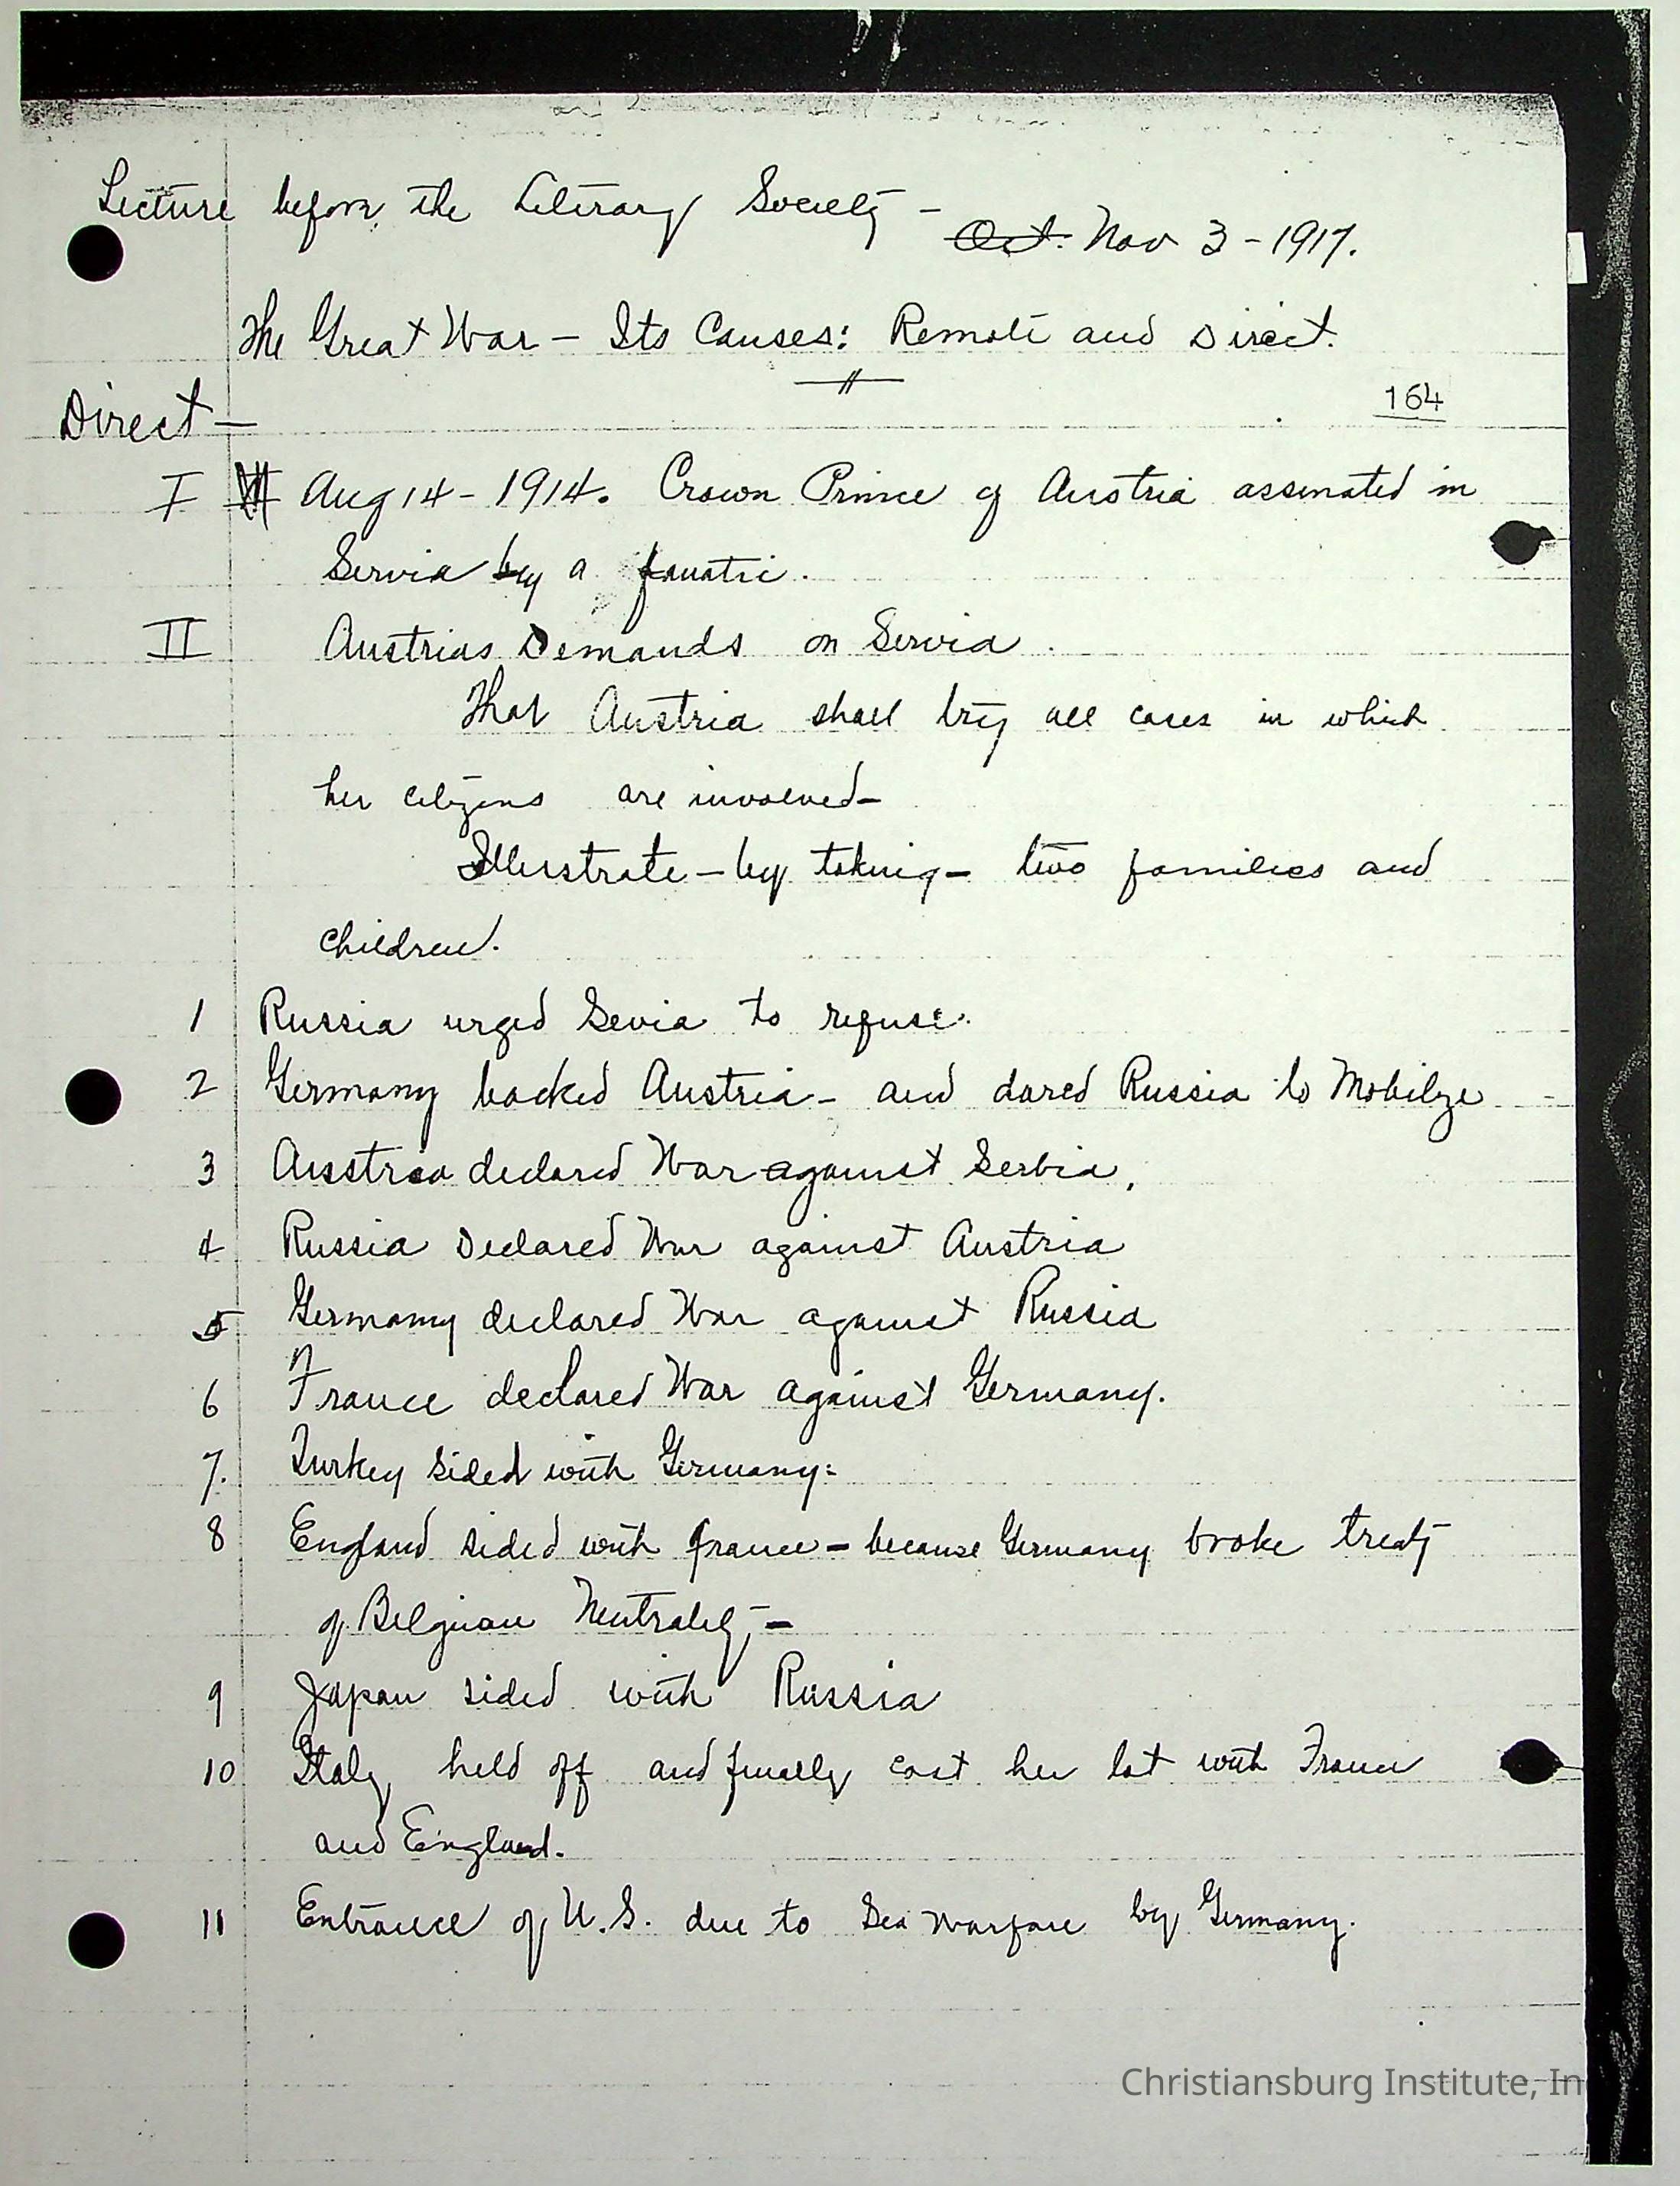 Lecture before the Literary Society -
Oct. Nov 3 - 1917.
The Great War - Its Causes: Remote and Direct.
164
Direct -
I Aug 14 - 1914. Crown Prince of Austria assinated in
Servia by a fanatic.
II Austrias Demands on Servia.
That Austria shall try all cases in which
her citizens are involved-
Illustrate - by taking - two families and
children.
1 Russia urged Sevia to refuse.
2 Germany backed Austria - and dared Russia to Mobilze
3 Austria declared War against Serbia,
4 Russia Declared War against Austria
5 Germany declared War against Russia
6 France declared War against Germany.
7. Turkey sided with Germany:
8 England sided with France - because Germany broke treaty
of Belgian Neutrality, -
9 Japan sided with Russia
10 Italy held off and finally cast her lot with France
and England.
11 Entrance of U.S. due to Sea warfare by Germany.
Christiansburg Institute, In